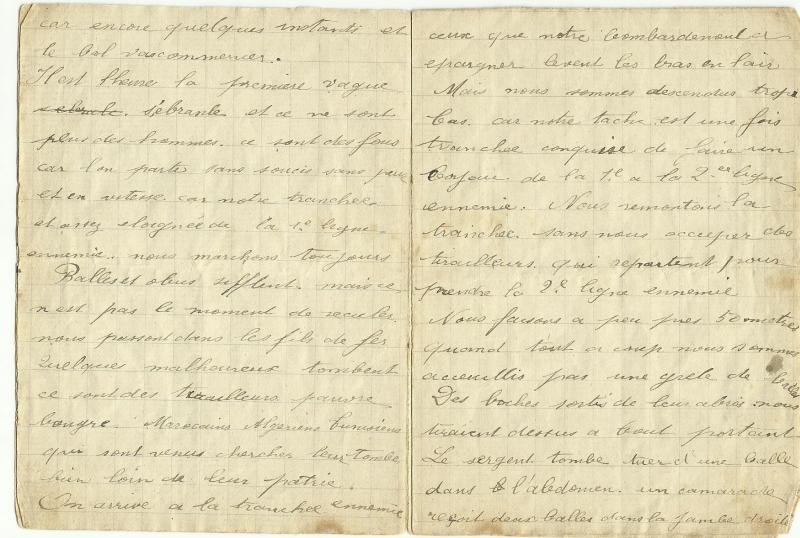 car encore quelques instants et
le bal vascommencer.
Il est lheure la première vague
s'ébranle et ce ne sont
plus des hommes. ce sont des fous
car l'on parts sans soucis sans peur
et en vitesse. car notre tranchée
et assez eloignée de la 1.e ligne.
ennemie. nous marchons toujours
Balles et obus sifflent. mais ce
n est pas le moment de reculer.
nous passont dans les fils de fer
Quelques malhoureux tombent
ce sont des tirailleurs pauvre
bougre. Marocains Algeriens tunisiens
qui sont venus chercher leur tombe
bien loin de leur patrie.
On arrive a la tranchée ennemie
ceux que notre bombardement a
epargner levent les bras en l'air
Mais nous sommes descendus trop a
bas. car notre tache est une fois
tranchee conquise de faire un
boyau de la 1.e a la 2.em ligne
ennemie. Nous remontons la
tranchee. sans nous occuper des
tirailleurs. qui repartent pour
prendre la 2.e ligne ennemie
Nous faisons a peu pres 50 metres
quand tout a coup nous sommes
acceuillis pas une grele de balles
Des boches sortis de leur abris nous
tiraient dessus a bout portant
Le sergent tombe tuer d'une balle
dans l'abdomen. un camarade
reçoit deux balles dans la jambe droite